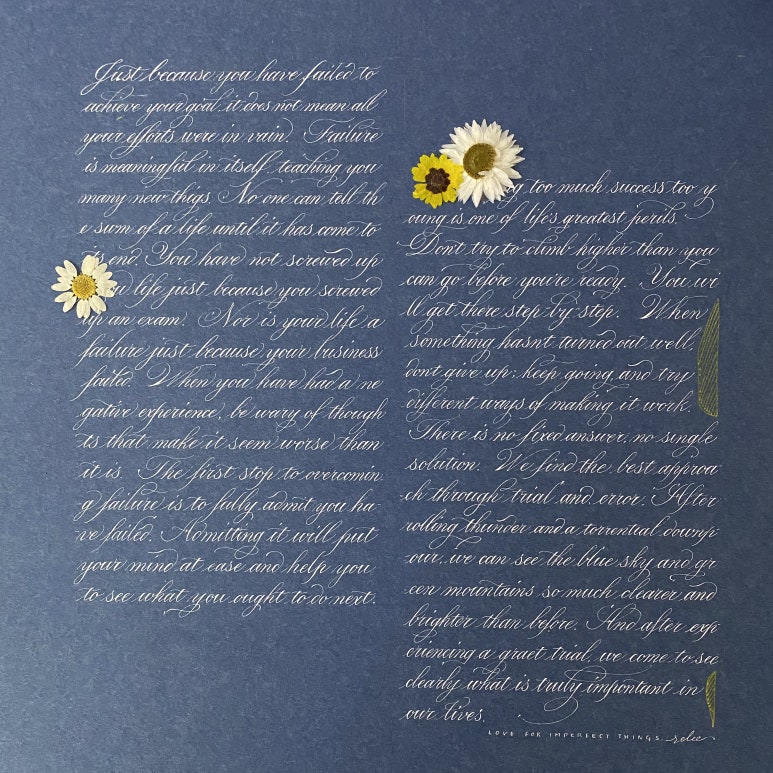 Just because you have failed to
achieve your goal, it does not mean all
your efforts were in vain. Failure
is meaningful in itself, teaching you
many new thigs. No one can tell th
e sum of a life until it has come to
end. You have not screwed up
life just because you screwed
up an exam. Nor is your life a
failure just because your business
failed. When you have had a ne
gative experience, be wary of though
ts that make it seem worse than
it is. The first step to overcomin
g failure is to fully admit you ha-
ve failed. Admitting it will put
your mind at ease and help you
to see what you ought to do next.
too much success too y
oung is one of life's greatest perils.
Don't try to climb higher than you
can go before you're ready. You wi
ll get there step by step. When
something hasn't turned out well,
don't give up; keep going, and try
different ways of making it work.
There is no fixed answer, no single
solution. We find the best approa
ch through trial and error. After
rolling thunder and a torrential downp
our, we can see the blue sky and gr
een mountains so much clearer and
brighter than before. And after exp
eriencing a graet trial, we come to see
clearly what is truly important in
our lives.
LOVE FOR IMPERFECT THINGS